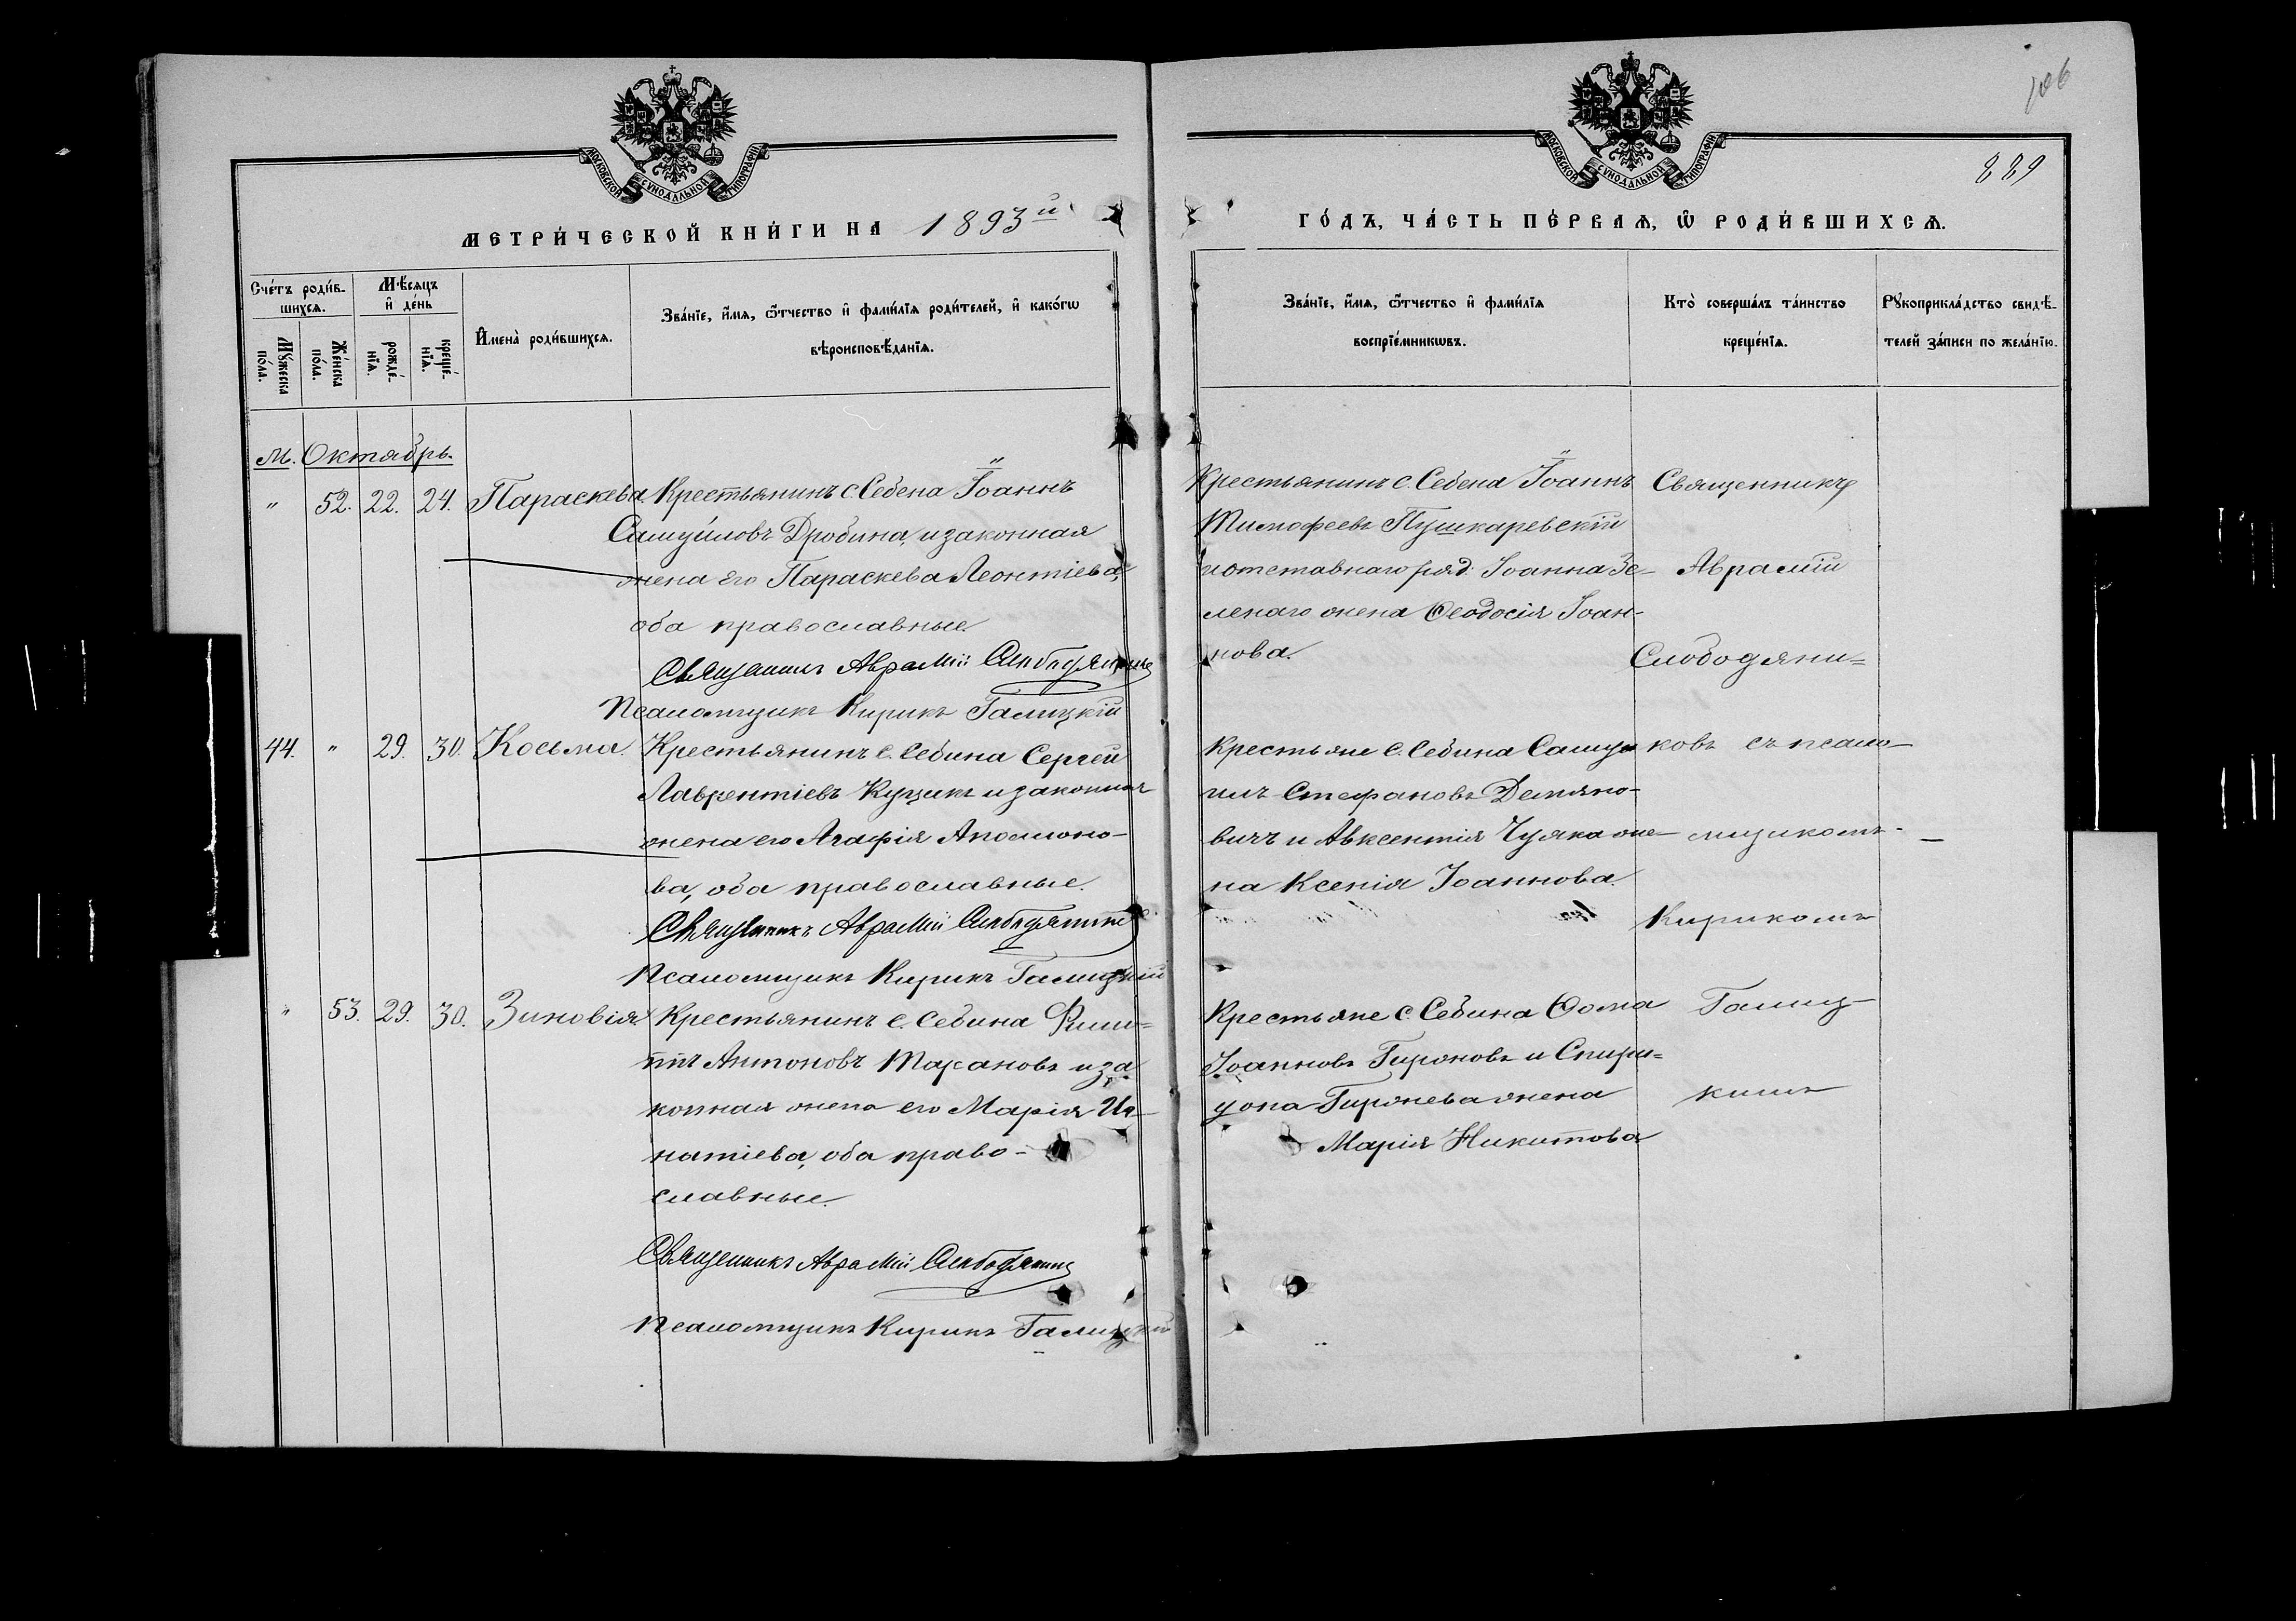 106
889
МОСКОВСКОЙ СѴНОДАЛЬНОЙ ТИПОГРАФІИ
МОСКОВСКОЙ СѴНОДАЛЬНОЙ ТИПОГРАФІИ
МЕТРИ́ЧЕСКОЙ КНИ́ГИ НА 1893й
ГО́ДЪ, ЧА́СТЬ ПЕ́РВАѦ, Ѿ РОДИ́ВШИХСѦ.
Сче́тъ роди́в-
шихся.
Мꙋ́жеска по́ла.
Же́нска по́ла.
Мѣ́сяцъ и҆ де́нь
рожде́-
нїѧ.
креще́-
нїѧ.
И҆мена̀ роди́вшихсѧ.
Зва́нїе, и҆́мѧ, ѻ҆́тчество и҆ фами́лїѧ роди́телей, и҆ како́гѡ
вѣроисповѣ́данїѧ.
Зва́нїе, и҆́мѧ, ѻ҆́тчество и҆ фами́лїѧ
воспрїе́мникѡвъ.
Кто̀ соверша́лъ та́инство
креще́нїѧ.
Рꙋкоприкла́дство свидѣ́-
телей за́писи по жела́нїю.
м. Октябрь.
" 52. 22. 24. Параскева. Крестьянинъ с. Себена Іоаннъ
Самуиловъ Дробина, и законная
жена его Параскева Леонтіева,
оба православные.
Священникъ Аврамій Слободяникъ
Псаломщикъ Кирикъ Галицкій
Крестьянинъ с. Себена Іоаннъ
Тимофеевъ Пушкаревскій
и отставнаго ряд. Іоанна Зе-
ленаго жена Ѳеодосія Іоан-
нова.
Священникъ
Аврамій
Слободяни-
44. " 29. 30. Косьма. Крестьянинъ с. Себина Сергей
Лаврентіевъ Куцикъ и законная
жена его Агафія Аполлоно-
ва, оба православные.
Священникъ Аврамій Слободяникъ
Псаломщикъ Кирикъ Галицкій
Крестьяне с. Себина Самуи
илъ Стефановъ Демяно-
вичъ и Авксентія Чуяка же-
на Ксенія Іоаннова.
ковъ съ псало-
мщикомъ
Кирикомъ
" 53. 29. 30. Зиновія. Крестьянинъ с. Себина Фили-
ппъ Антоновъ Таранов и за
конная жена его Марія Иг-
натіева, оба право-
славные.
Священникъ Аврамій Слободяникъ
Псаломщикъ Кирикъ Галицкій
Крестьяне с. Себина Ѳома
Іоанновъ Гиржовъ и Спири-
дона Гиржева жена
Марія Никитова
Галиц-
кимъ